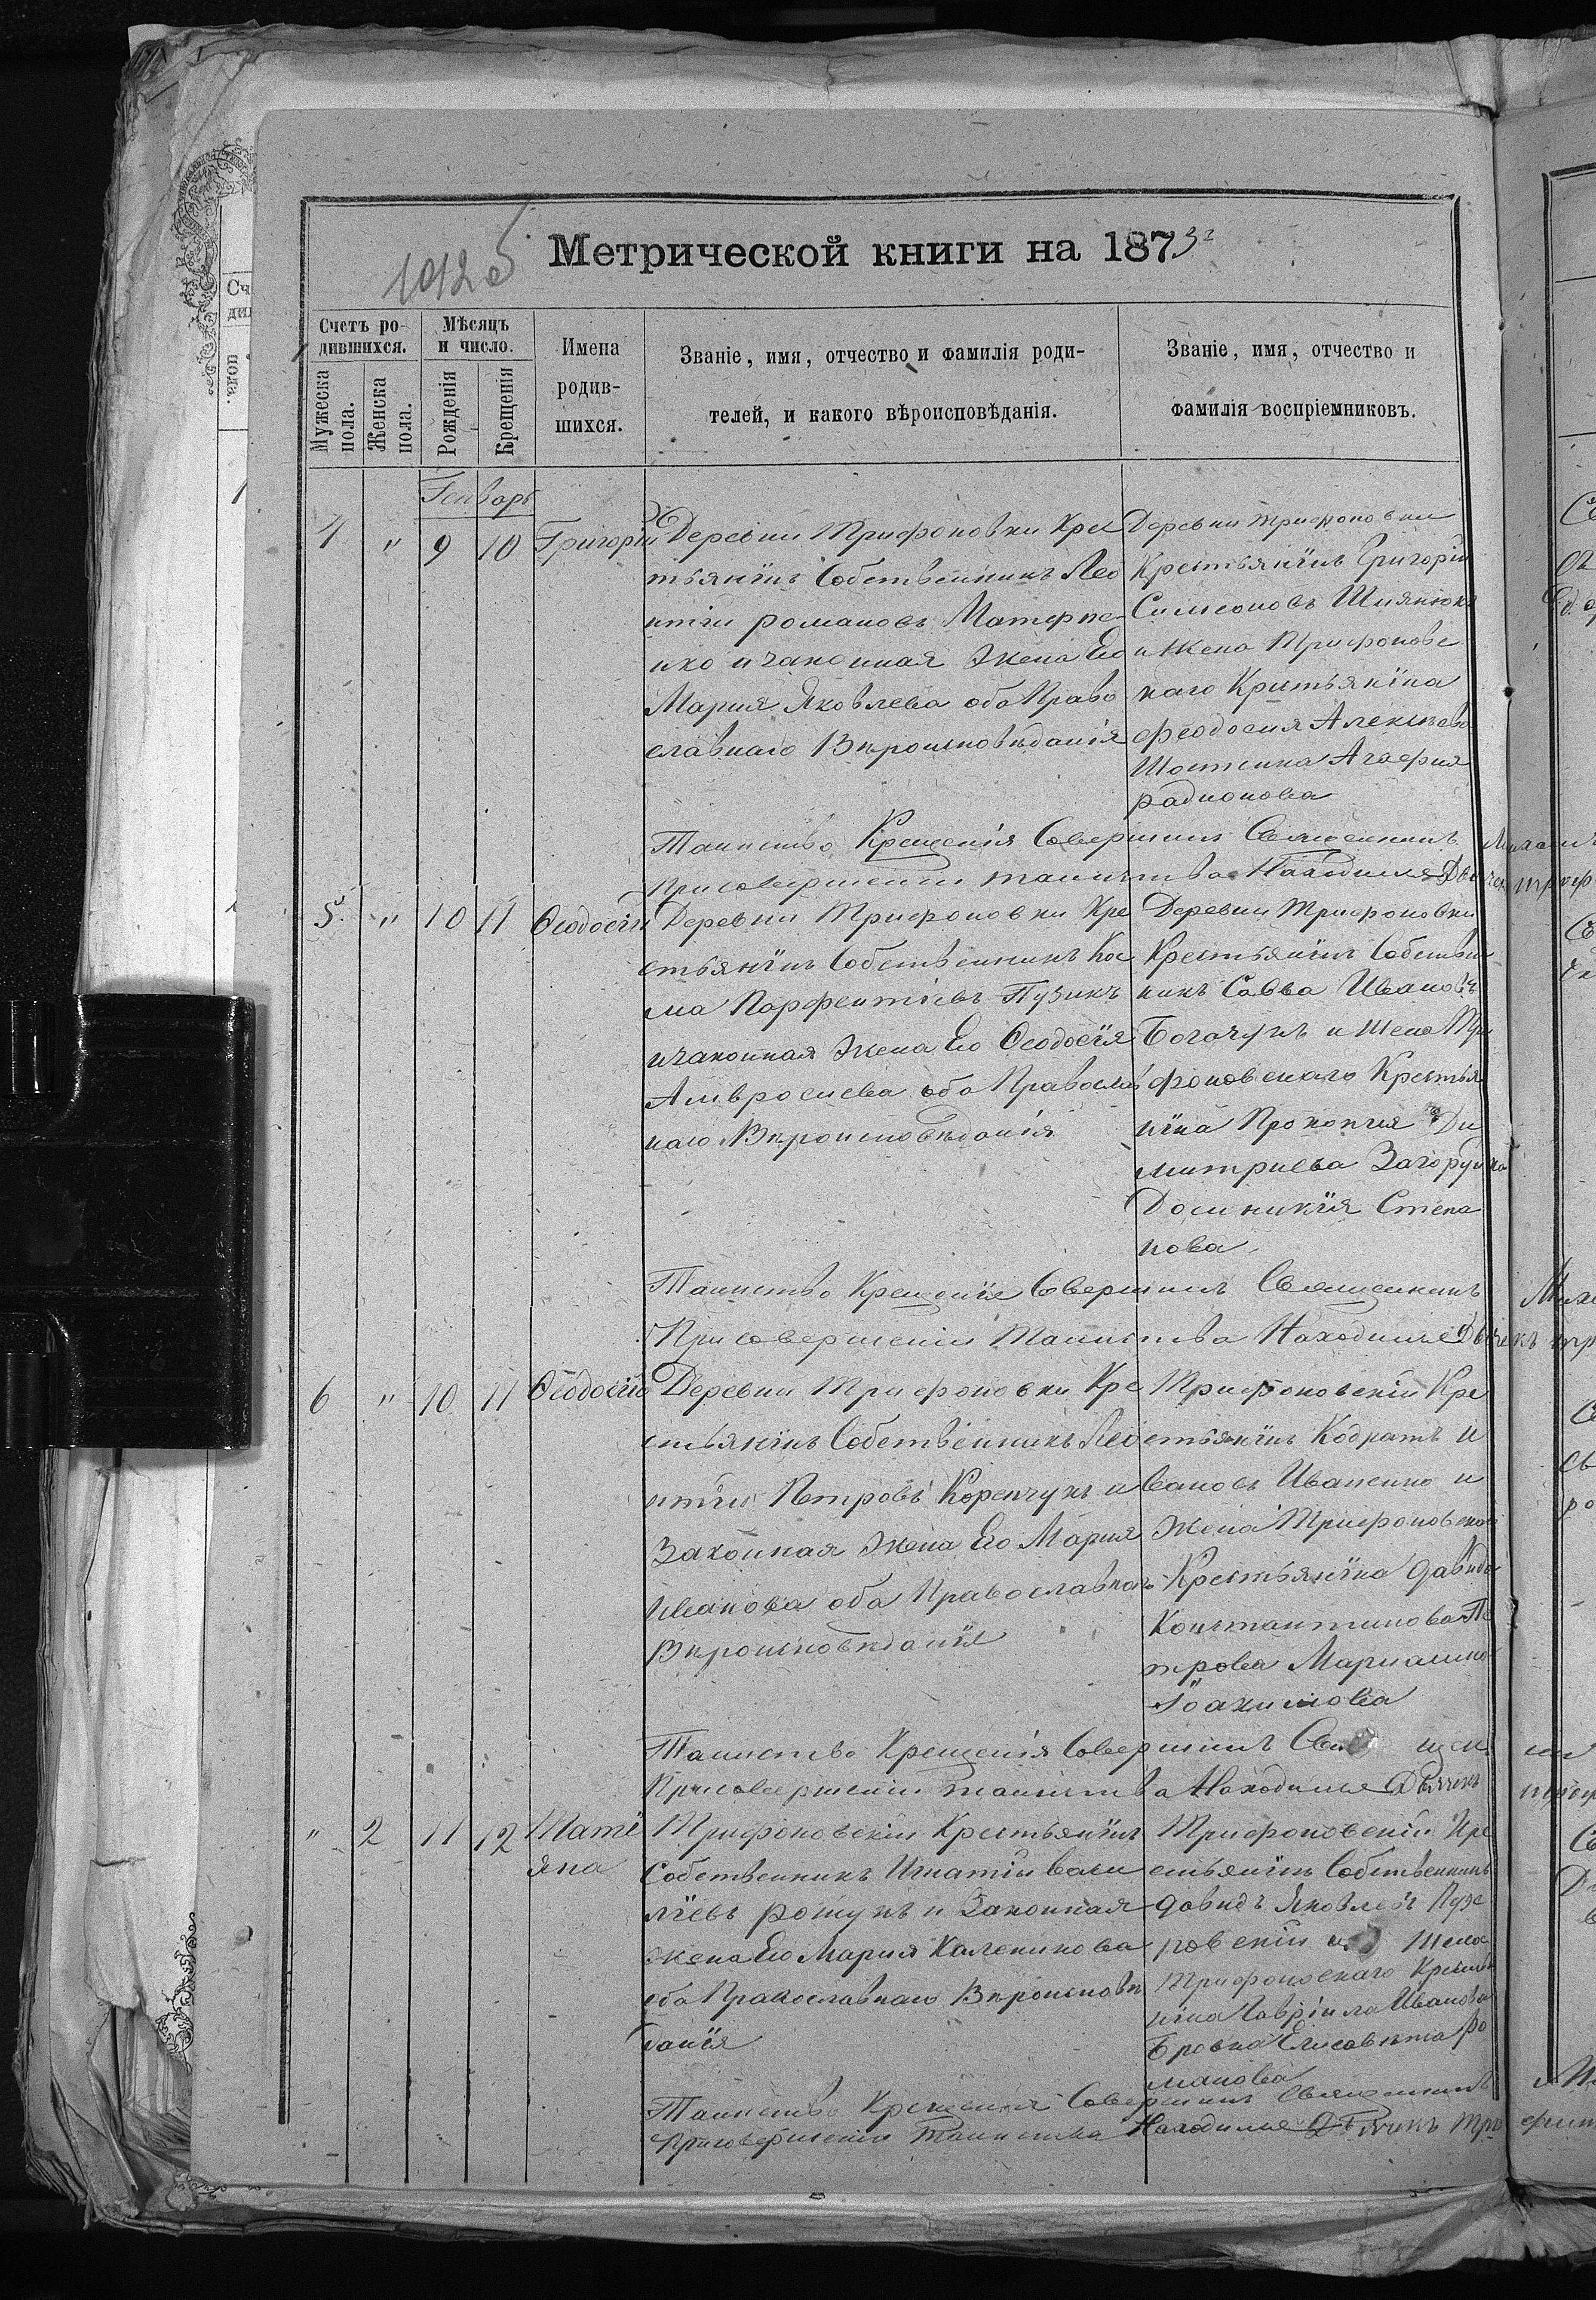 Метрической книги на 1873
Счетъ родившихся.
Мѣсяцъ и число.
Имена родившихся.
Званіе, имя, отчество и фамилія родителей, и какого вѣроисповѣданія.
Званіе, имя, отчество и фамилія воспріемниковъ.
Мужеска пола.
Женска пола.
Рожденія
Крещенія
Генворь
4 " 9 10 Григорій
Деревни Трифоновки Крес
тьянїнъ Собственникъ Лео
нтій романовъ Матфіе
нко и законная Жена Его
Мария Яковлева оба Право
славнаго Вѣроисповѣданія
Деревни трифоновки
Крестьянїнъ Григорій
Симеоновъ
и Жена Трифоновс
каго Крстьянїна
феодосия Алексѣева
Агафия
радионова
Таинство Крещенія Совершилъ Священникъ
Присовершении таинства Находился Дьячек
5 " 10 11 Ѳеодосій
Деревни Трифоновки Кре
стьянїнъ Собственникъ Кос
ма Парфентіевъ Пузикъ
и законная Жена Его Ѳеодосїя
Амвросиева оба Православ
наго Вѣроисповѣданія
Деревни Трифоновки
Крестьянїнъ Собствен
никъ Савва Ивановъ
Богачукъ и Жена Три
фоновскаго Крестья
нїна Прокопия Ди
митриева Загоруйка
Домникїя Степа
нова
Таинство Крещенїя Совершилъ Священникъ
Присовершеніи Таинства Находился Дьячекъ
6 " 10 11 Ѳеодосій
Деревни Трифоновки Кре
стьянїнъ Собственникъ Лео
нтій Петровъ Коренчукъ и
Законная Жена Его Мария
Иванова оба Православнаго
Вѣроисповѣданїя
Трифоновскій Кре
стьянїнъ Кодратъ И
вановъ Иваненко и
Жена Трифоновскаго
Крестьянїна давида
Константинова Пе
трова Мариамна
Іоакимова
Таинство Крещенія Совершилъ
Присовершеніи таинства Находился Дьячекъ
" 2 11 12 Татї
яна
Трифоновскій Крестьянїнъ
Собственникъ Игнатій Васи
лїевъ рощукъ и Законная
жена Его Мария Каленикова
оба Православнаго Вѣроисповѣ
данїя
Трифоновскій Кре
стьянїнъ Собственникъ
давидъ Яковлевъ
ровскій и Жена
Трифоновскаго Крестья
нїна Гавріила Иванова
Бровка Елисавѣта Ро
манова
Таинство Крещения Совершилъ Священникъ
Присовершеніи Таинства Находился Дьячекъ